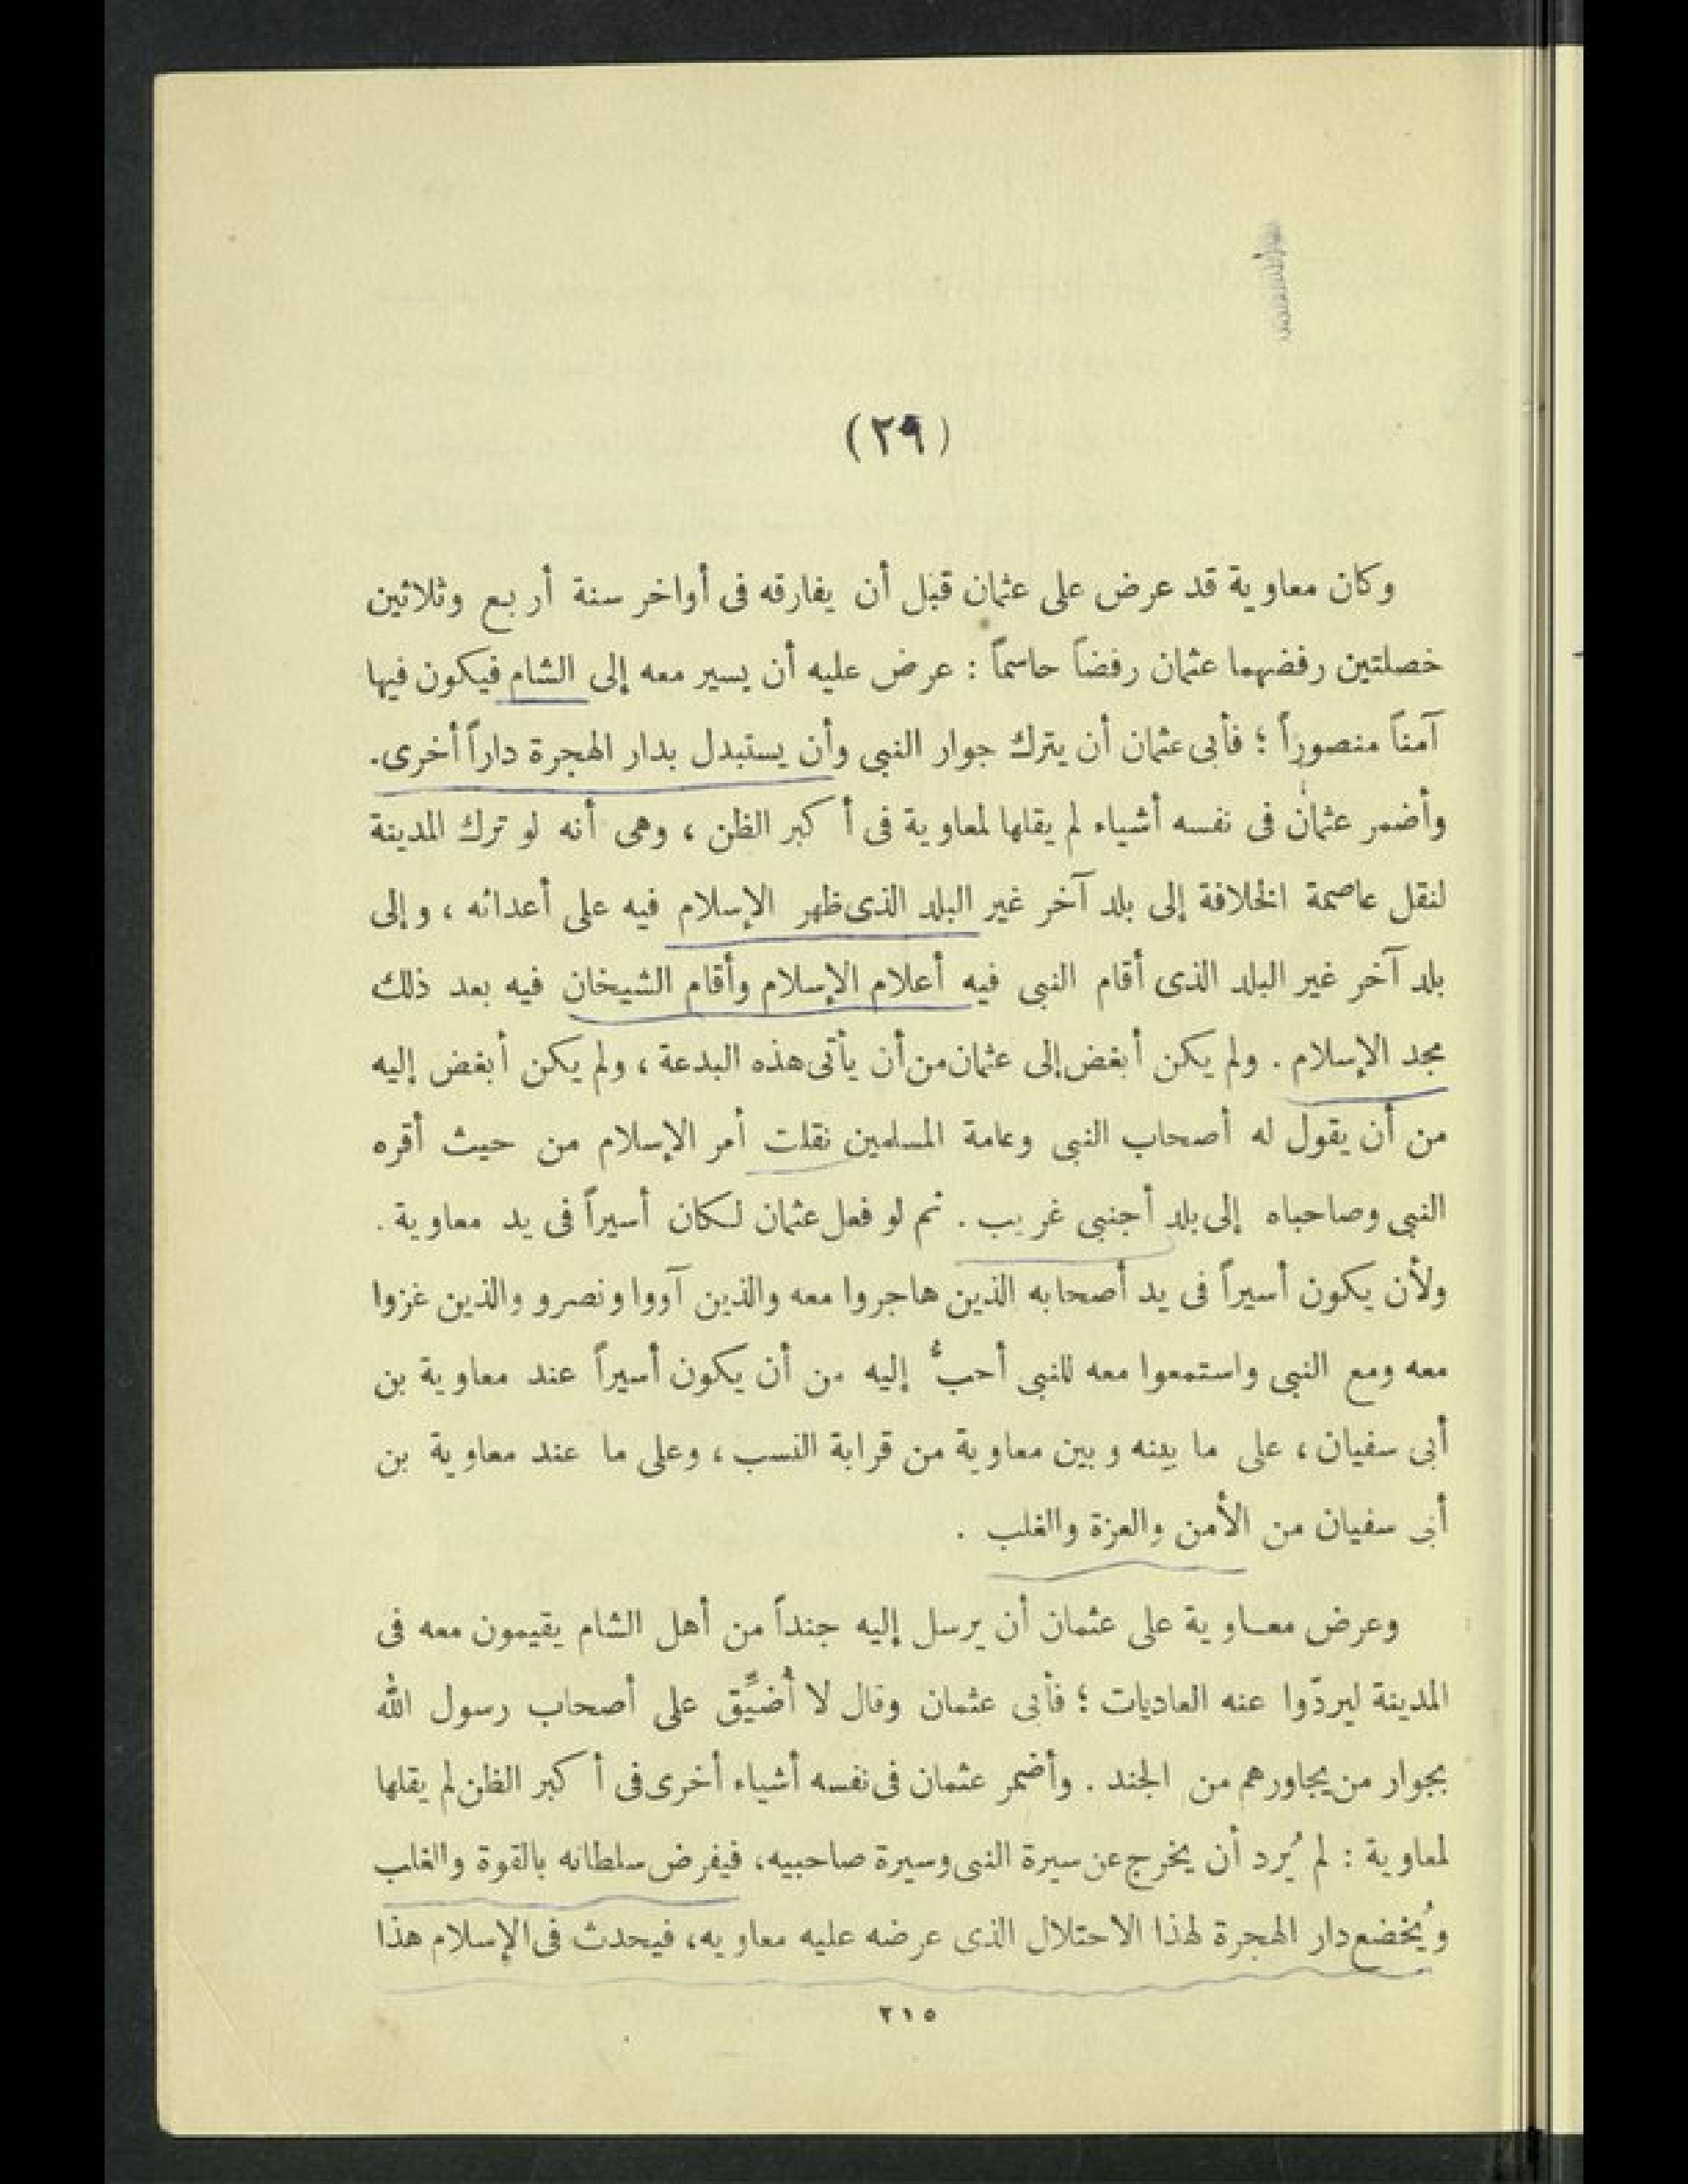 (٢٩)
وكان معاوية قد عرض على عثمان قبل أن يفارقه فى أواخر سنة أربع وثلاثين
خصلتين رفضهما عثمان رفضاً حاسماً : عرض عليه أن يسير معه إلى الشام فيكون فيها
آمناً منصوراً ؛ فأبى عثمان أن يترك جوار النبى وأن يستبدل بدار الهجرة داراً أخرى.
وأضمر عثمان فى نفسه أشياء لم يقلها لمعاوية فى أكبر الظن ، وهى أنه لو ترك المدينة
لنقل عاصمة الخلافة إلى بلد آخر غير البلد الذى ظهر الإسلام فيه على أعدائه ، وإلى
بلد آخر غير البلد الذى أقام النبى فيه أعلام الإسلام وأقام الشيخان فيه بعد ذلك
مجد الإسلام . ولم يكن أبغض إلى عثمان من أن يأتى هذه البدعة ، ولم يكن أبغض إليه
من أن يقول له أصحاب النبى وعامة المسلمين نقلت أمر الإسلام من حيث أقره
النبى وصاحباه إلى بلد أجنبى غريب . ثم لو فعل عثمان لكان أسيراً فى يد معاوية .
ولأن يكون أسيراً فى يد أصحابه الذين هاجروا معه والذين آووا ونصرو والذين غزوا
معه ومع النبى واستمعوا معه للنبى أحبُّ إليه من أن يكون أسيراً عند معاوية بن
أبى سفيان ، على ما بينه وبين معاوية من قرابة النسب ، وعلى ما عند معاوية بن
أبى سفيان من الأمن والعزة والغلب .
وعرض معاوية على عثمان أن يرسل إليه جنداً من أهل الشام يقيمون معه فى
المدينة ليردّوا عنه العاديات ؛ فأبى عثمان وقال لا أُضيِّق على أصحاب رسول الله
بجوار من يجاورهم من الجند . وأضمر عثمان فى نفسه أشياء أخرى فى أكبر الظن لم يقلها
لمعاوية : لم يُرد أن يخرج عن سيرة النبى وسيرة صاحبيه، فيفرض سلطانه بالقوة والغلب
ويُخضع دار الهجرة لهذا الاحتلال الذى عرضه عليه معاويه، فيحدث فى الإسلام هذا
٢١٥